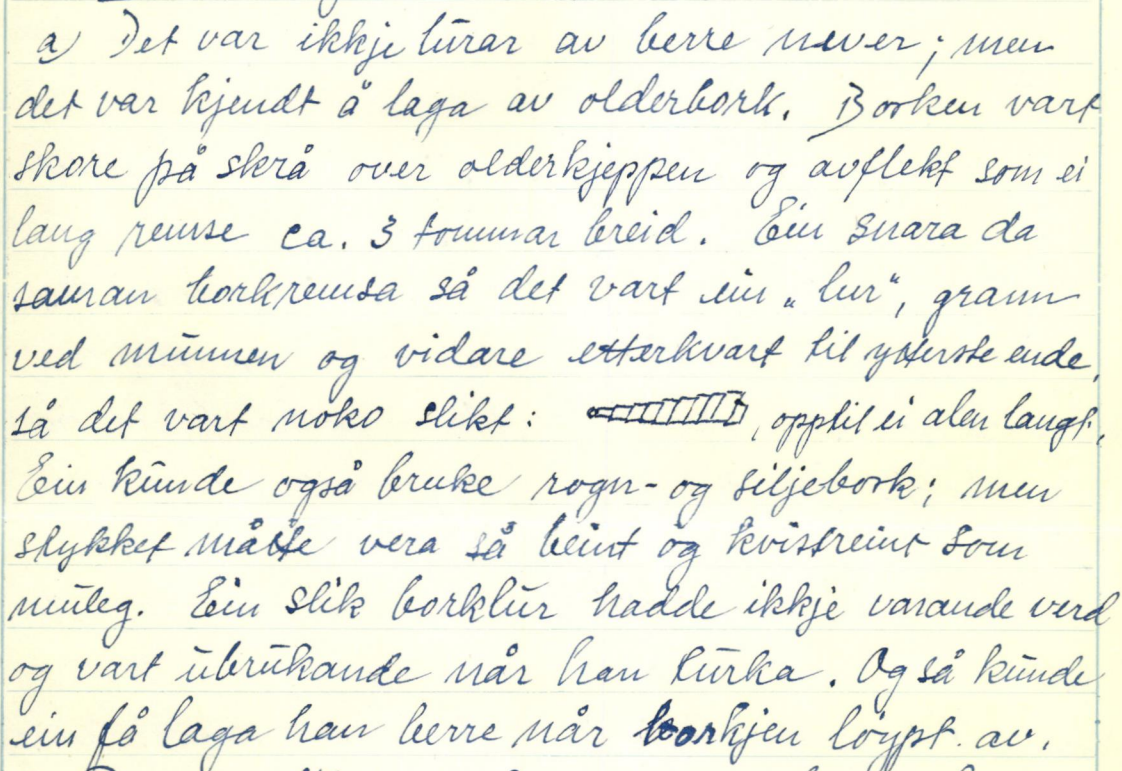 a) Det var ikkje lurar av berre never; men
det var kjendt å laga av olderbork. Borken vart
skore på skrå over olderkjeppen og avflekt som ei
lang remse ca. 3 tommar breid. Ein snara da
saman borkremsa så det vart ein „lur“, grann
ved munnen og vidare etterkvart til ytterste ende,
så det vart noko slikt: , opptil ei alen langt.
Ein kunde også bruke rogn- og siljebork; men
stykket måtte vera så beint og kvistreint som
muleg. Ein slik borklur hadde ikkje varande verd
og vart ubrukande når han turka. Også kunde
ein få laga han berre når borkjen løypt av.